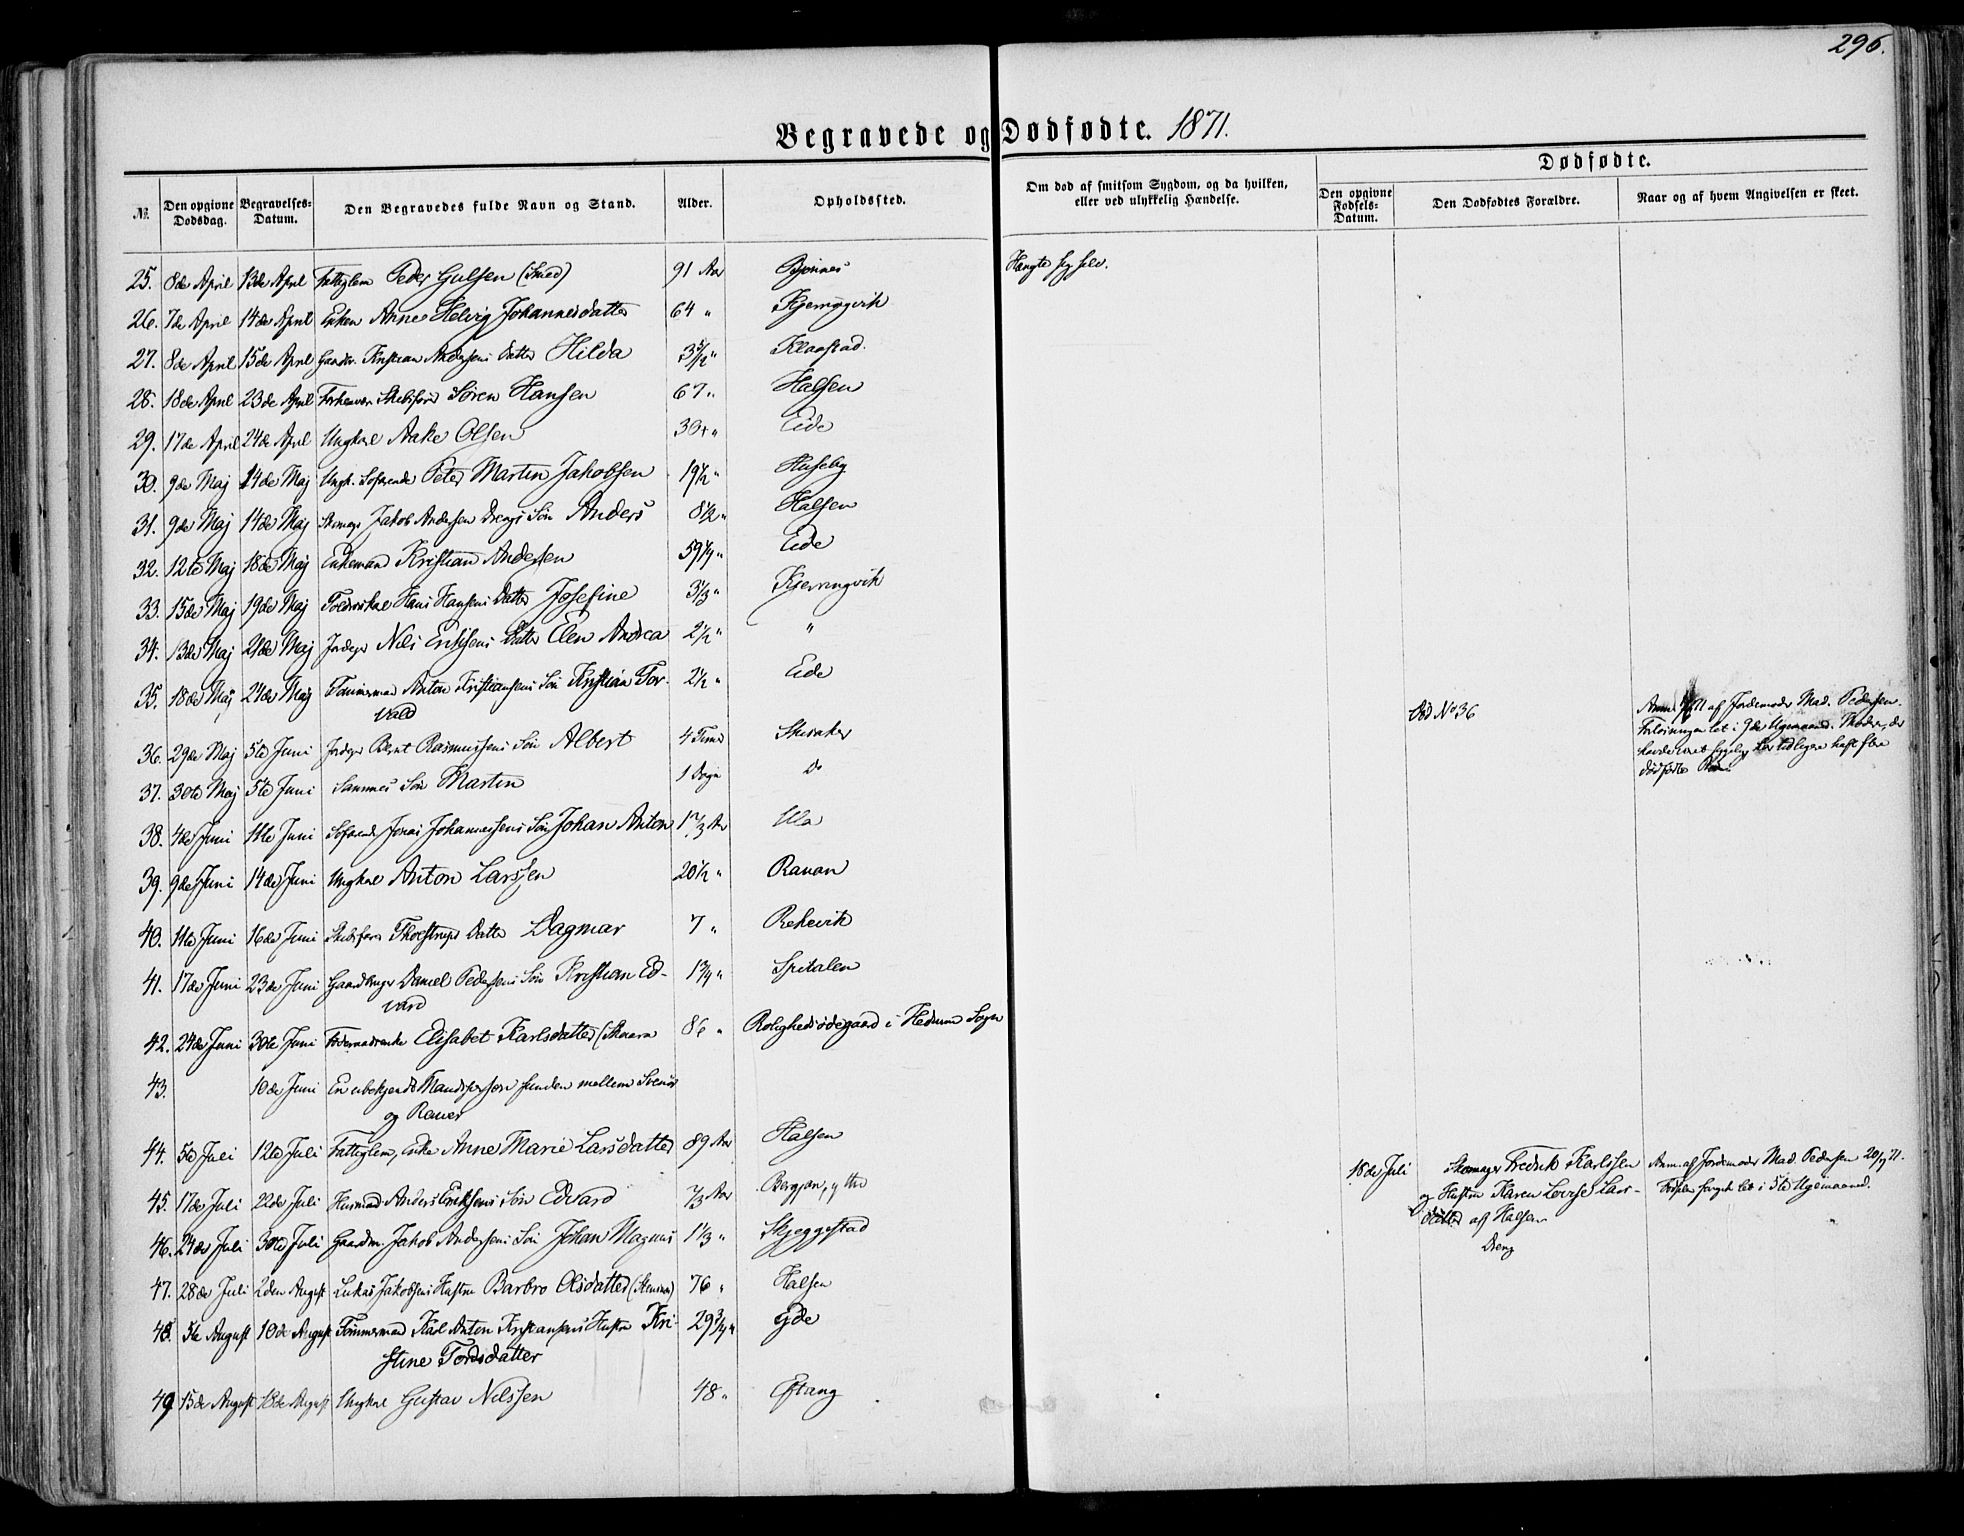 296.
Begravede og Dødfødte. 1871.
Dødfødte.
№ Den opgivne Dødsdag. Begravelses-Datum. Den Begravedes fulde Navn og Stand. Alder. Opholdssted. Om død af smitsom Sygdom, og da hvilken, eller ved ulykkelig Hændelse. Den opgivne Fødsels-Datum. Den Dødfødtes Forældre. Naar og af hvem Angivelsen er skeet.
25. 8de April 13de April Fatteglem Peder Gulsen (Smed) 91 Aar Bønnes Hængte sig selv.
26. 7de April 14de April Enken Anne Helvig Johannesdatter 64 " Kjerringvik
27. 8de April 15de April Gaardbr. Kristian Andersens Datter Hilda Klaastad.
28. 18de April 23de April Forhenvær. Skibsfører Søren Hansen 67 " Halsen
29. 17de April 24de April Ungkarl Aake Olsen Eide
30. 9de Maj 14de Maj Ungk. Søfarende Peter Martin Jakobsen 19½ " Huseby
31. 9de Maj 14de Maj Skomag. Jakob Andersen Drengs Søn Anders 8½ " Halsen
32. 12te Maj 18de Maj Enkemand Kristian Andersen 59¼ " Eide
33. 15de Maj 19de Maj Hans Hansens Datter Josefine 3⅓ " Kjerringvik
34. 13de Maj 21de Maj Jordeger Nils Eriksens Datter Elen Andrea 2½ " "
35. 18de Maj 24de Maj Tømmermand Anton Kristiansens Søn Kristian Tor- 2½ " Eide
vald
Ved No 36 Anm. af Jordemoder Mad. Pedersen.
36. 29de Maj 5te Juni Jordeger Bernt Rasmussens Søn Albert 4 Timer Skisaker
37. 30te Maj 5te Juni Sammes Søn Martin 1 Døgn Do
dødfødte Børn.
38. 4de Juni 11te Juni Søfarende Jonas Johannessens Søn Johan Anton 1⅔ Aar Ula
39. 9de Juni 14de Juni Ungkarl Anton Larssen 20½ " Rauan
40. 11te Juni 16de Juni Skibsfører Thorstrups Datter Dagmar 7 " Rekevik
41. 17de Juni 23de Juni Gaardbruger Daniel Pedersens Søn Kristian Ed- 1¾ " Spitalen
vard
42. 24de Juni 30te Juni Elisabet Karlsdatter 86 " Rolighedsødegaard i Hedrum Sogn
43. 10de Juni En ubekjendt Mandsperson funden mellem Svenør
og Rauer
44. 5te Juli 12te Juli Fatteglem, Enke Anne Marie Larsdatter 89 Aar Halsen
45. 17de Juli 22de Juli Husmand Anders Eriksens Søn Edvard ⅔ Aar
18de Juli Skomager Fredrik Karlssen Anm. af Jordemoder Mad. Pedersen 20/7 71.
og Hustru Karen Lovise Lars- Fødselen foregik let i 5te Ugemaaned.
datter af Halsen
Dreng
46. 24de Juli 30te Juli Gaardm. Jakob Andersens Søn Johan Magnus 1⅓ " Skjeggestad
47. 28de Juli 2den August Lukas Jakobsens Hustru Barbro Olsdatter 76 " Halsen
48. 5te August 10de August Tømmermand Karl Anton Kristiansens Hustru Kri- 29¾ " Eide
stine Tordsdatter
49 15de August 18de August Ungkarl Gustav Nilssen 48 " Eftang